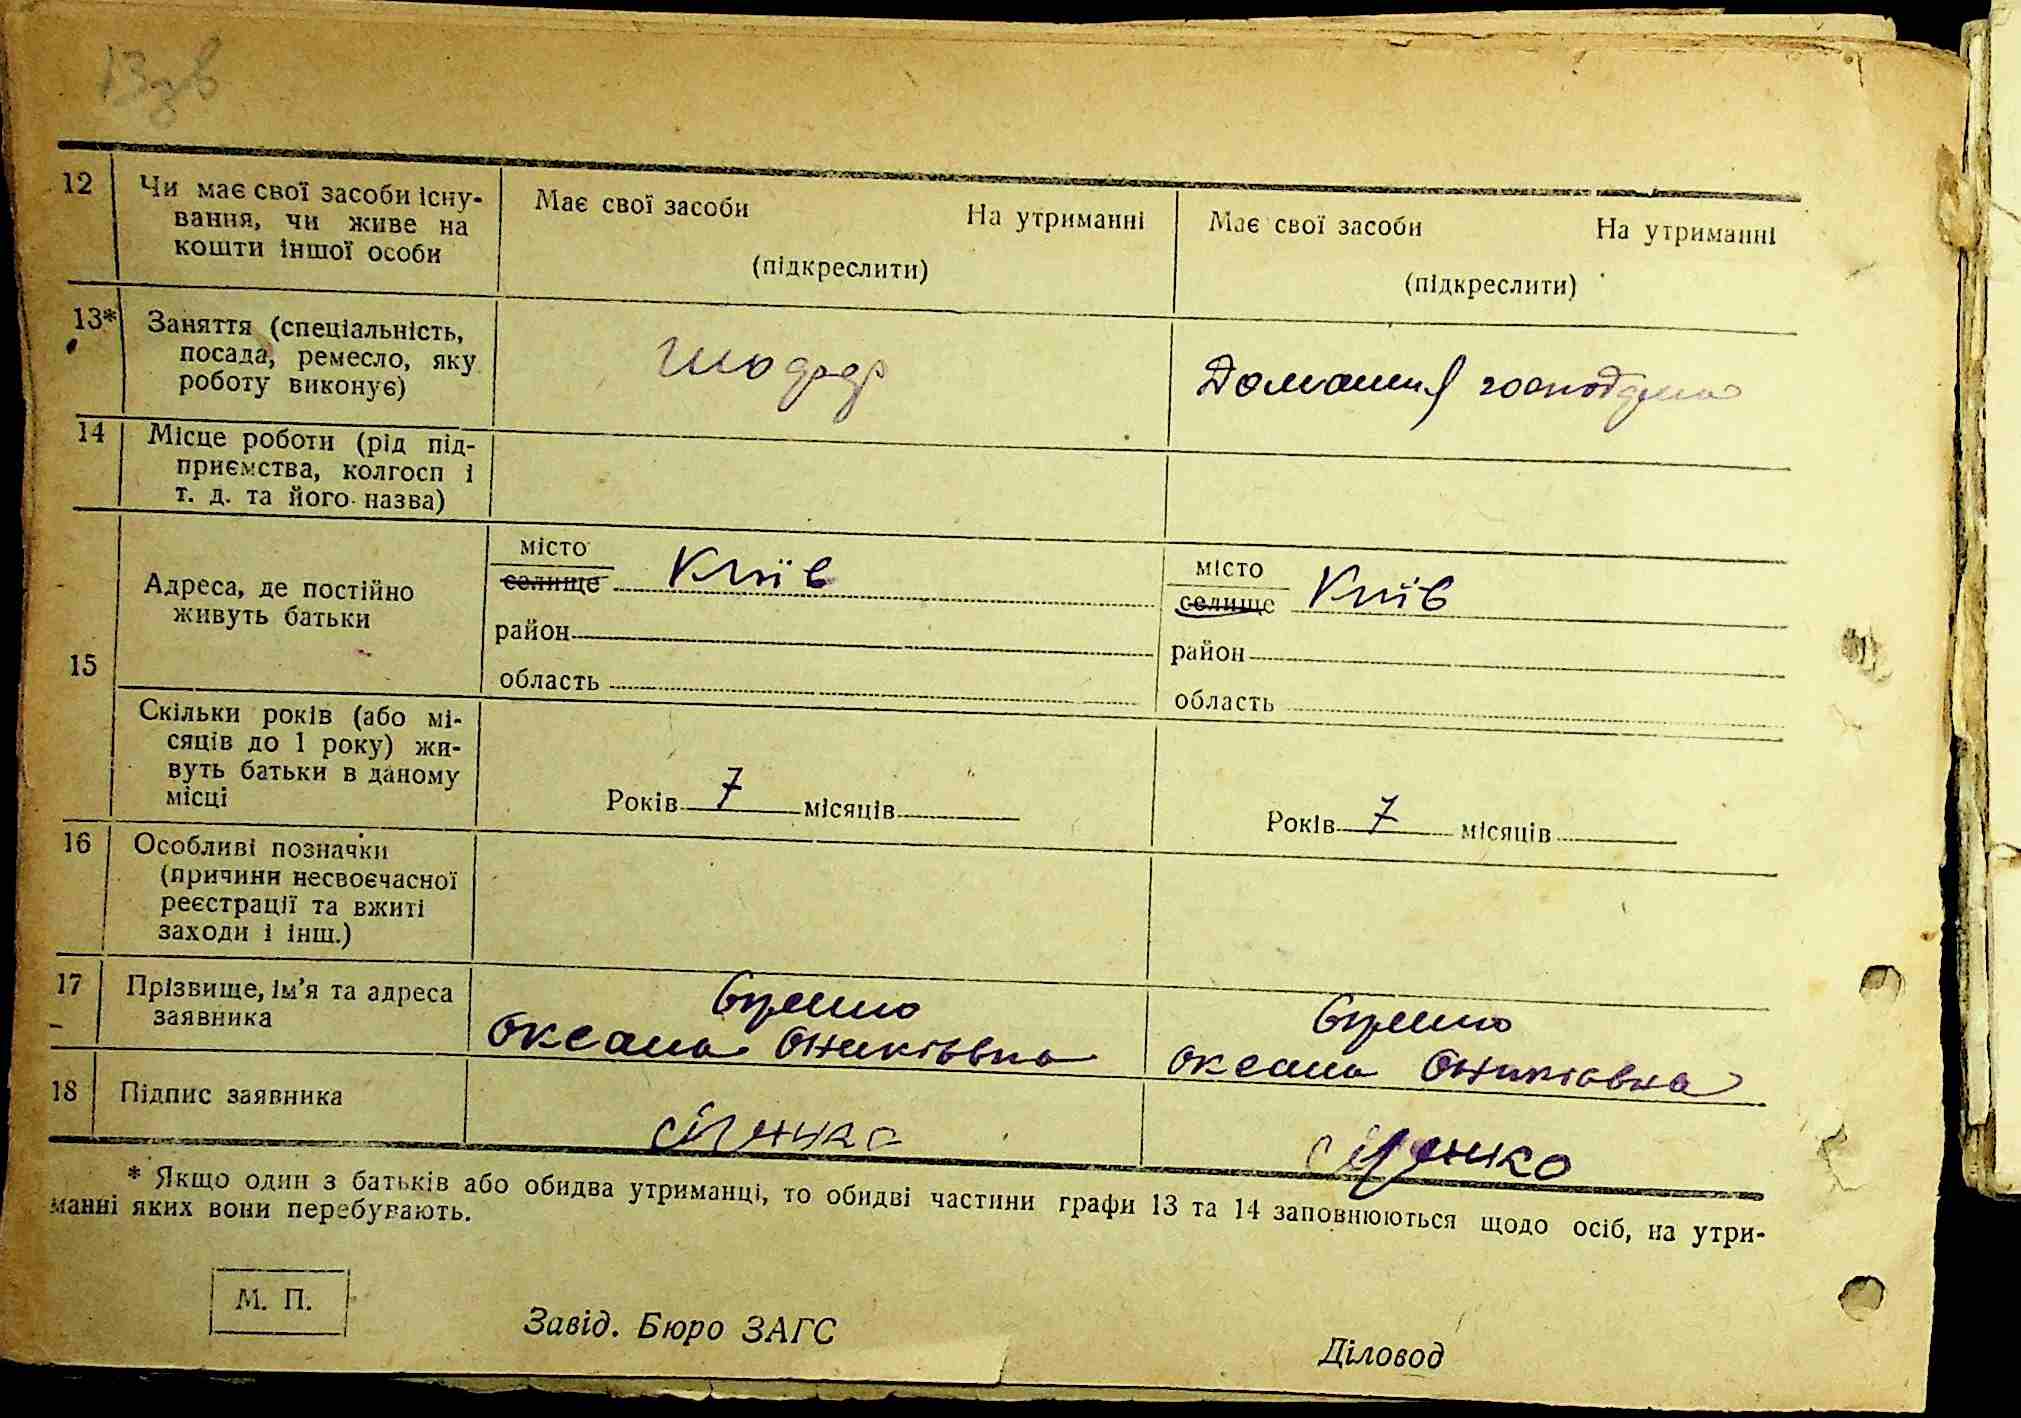 13зв
12 Чи має свої засоби існу-
вання, чи живе на
кошти іншої особи
Має свої засоби На утриманні
(підкреслити)
Має свої засоби На утриманні
(підкреслити)
13* Заняття (спеціальність,
посада, ремесло, яку
роботу виконує)
шофер
Домашня господарка
14 Місце роботи (рід під-
приємства, колгосп і
т. д. та його назва)
15
Адреса, де постійно
живуть батьки
місто
селище Київ
район
область
місто
селище Київ
район
область
Скільки років (або мі-
сяців до 1 року) жи-
вуть батьки в даному
місці
Років 7 місяців
Років 7 місяців
16 Особливі позначки
(причини несвоєчасної
реєстрації та вжиті
заходи і інш.)
17 Прізвище, ім'я та адреса
заявника
Оксана
Оксана
18 Підпис заявника
* Якщо один з батьків або обидва утриманці, то обидві частини графи 13 та 14 заповнюються щодо осіб, на утри-
манні яких вони перебувають.
М. П.
Завід. Бюро ЗАГС
Діловод